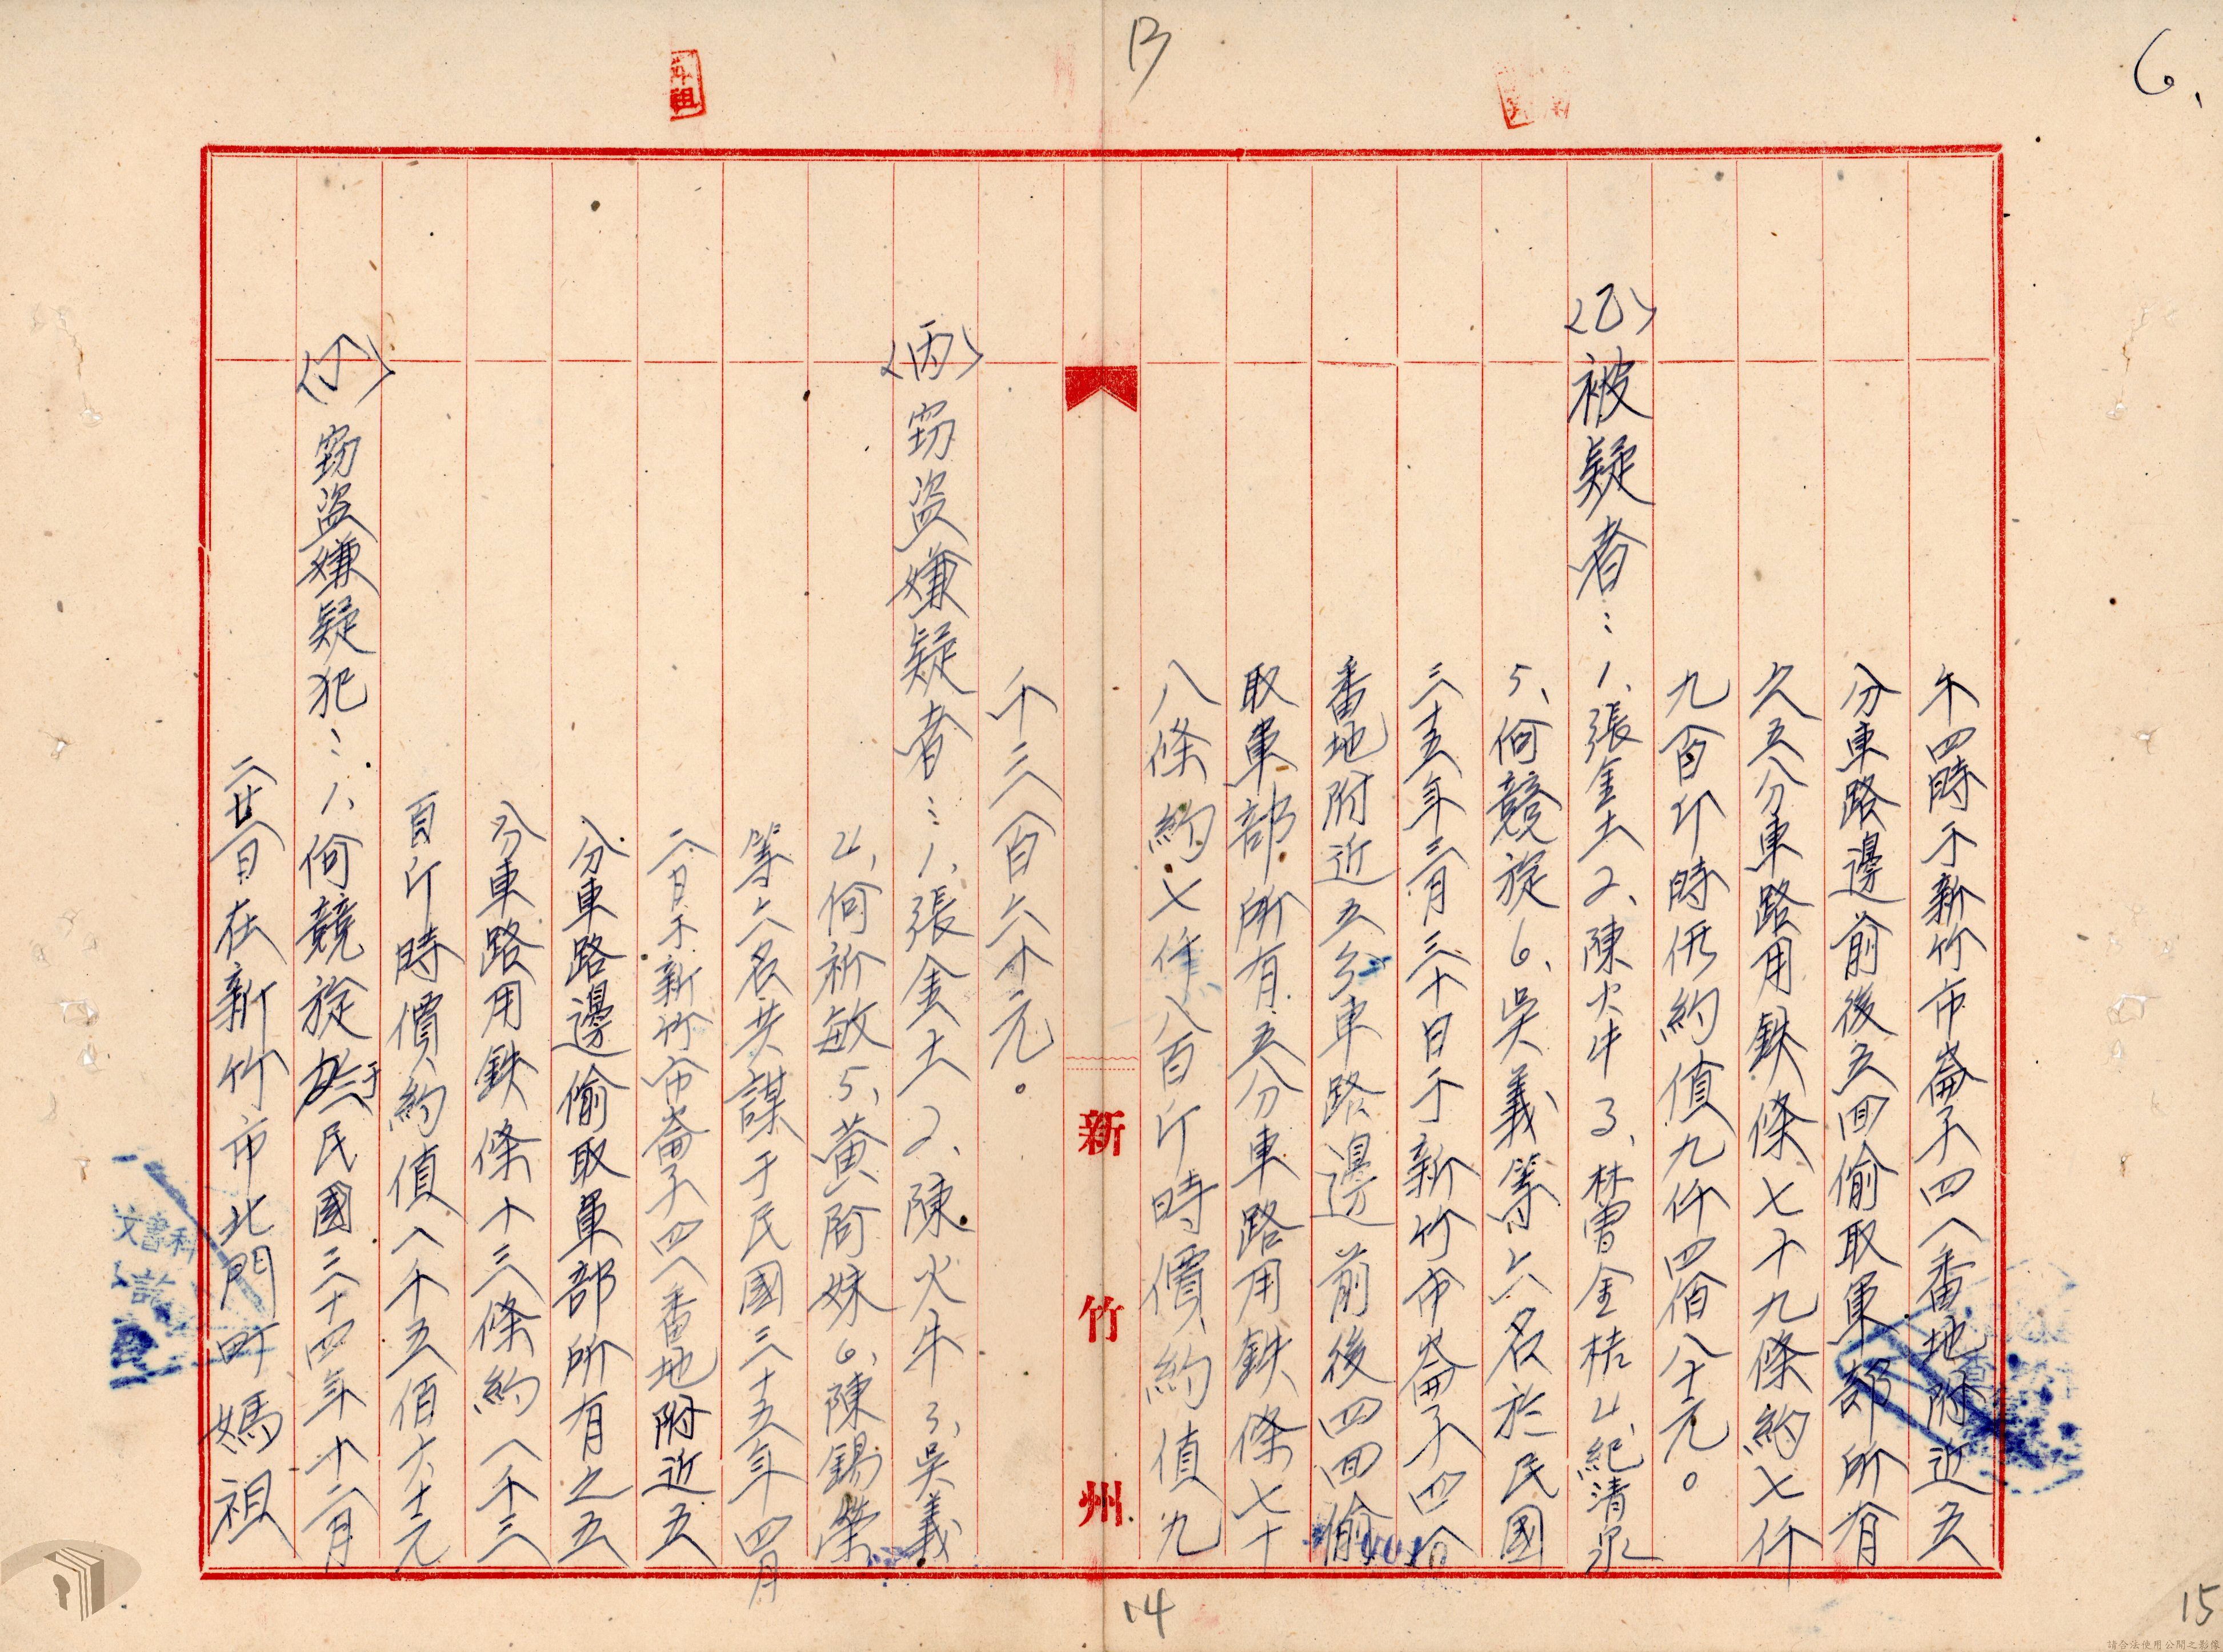 13
6、
午四時于新竹市崙子四八番地附近五
分車路邊前後五回偷取軍部所有
之五分車路用鉄條七十九條約七仟
九百斤時價約值九仟四佰八十元。
〈乙〉被疑者：1、張金土2、陳火牛3、林曾金桔4、紀清泉
5、何競旋6、吳義等六名於民國
三十五年三月三十日于新竹市崙子四八
番地附近五分車路邊前後四回偷
取軍部所有五分車路用鉄條七十
八條約七仟八百斤時價約值九
新竹州
千三百六十元。
〈丙〉窃盗嫌疑者：1、張金土2、陳火牛3、吳義
4、何祈敏5、黃阿妹6、陳錫榮
等六名共謀于民國三十五年四月
二日于新竹市崙子四八番地附近五
分車路邊偷取軍部所有之五
分車路用鉄條十三條約一千三
百斤時價約值一千五佰六十元
〈丁〉窃盗嫌疑犯：1、何競旋于民國三十四年十二月
二十一日在新竹市北門町媽祖
14
15
文書科
請合法使用公開之影像